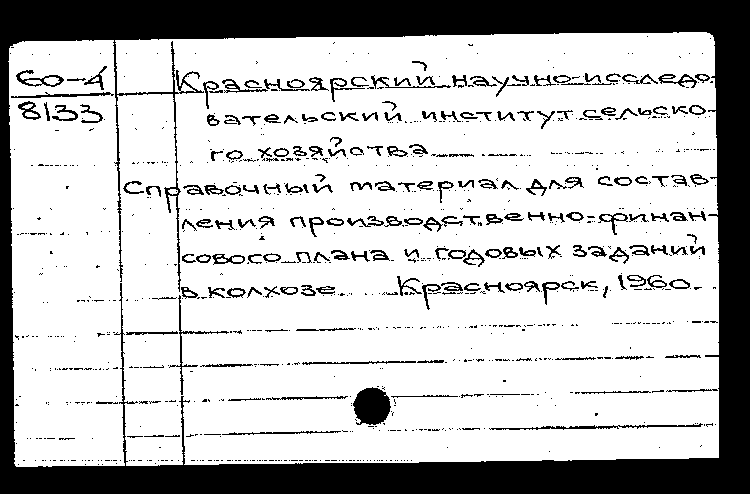 60-4
8133
Красноярский научно-исследо-
вательский институт сельско-
го хозяйства
Справочный материал для состав-
ления производственно-финан-
сового плана и годовых заданий
в колхозе. Красноярск, 1960.